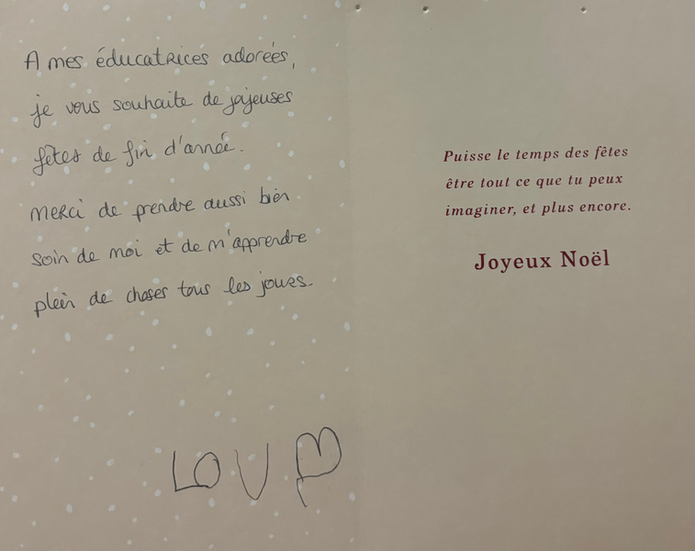 A mes éducatrices adorées,
je vous souhaite de joyeuses
fêtes de fin d'année.
Merci de prendre aussi bien
soin de moi et de m'apprendre
plein de choses tous les jours.
LOV
Puisse le temps des fêtes
être tout ce que tu peux
imaginer, et plus encore.
Joyeux Noël